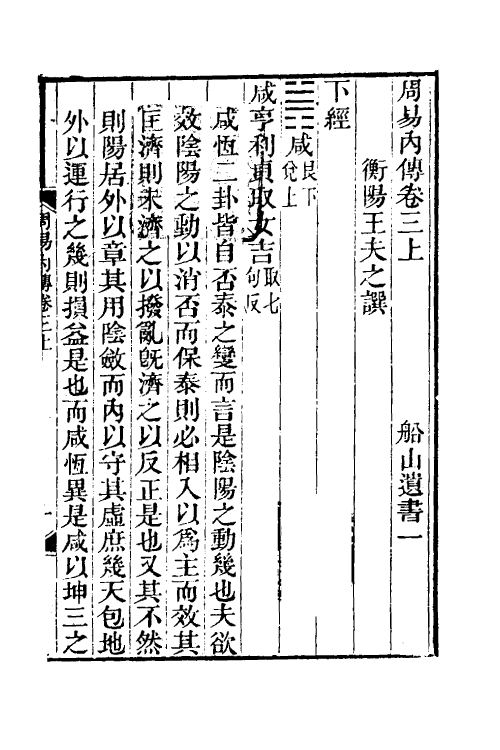 周易內傳卷三上　　船山遺書一
衡陽王夫之譔
下經
䷞咸艮下兌上
咸亨利貞取女吉取七句反
咸恆二卦皆自否泰之變而言是陰陽之動幾也夫欲
效陰陽之動以消否而保泰則必相入以爲主而效其
匡濟則未濟之以撥亂旣濟之以反正是也又其不然
則陽居外以章其用陰斂而內以守其虛庶幾天包地
外以運行之幾則損益是也而咸恆異是咸以坤三之
周易內傳卷三上
一